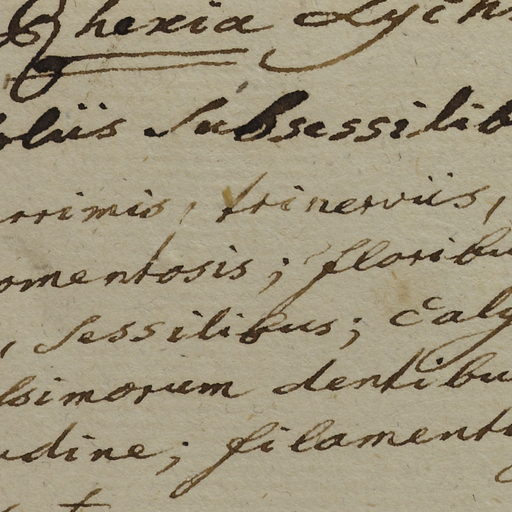 Rhexia Lychn
oliis subsessilib
errimis, trinerviis,
omentosis; floribu
, sessilibus; Caly
lsimorum dentibu
udine; filament